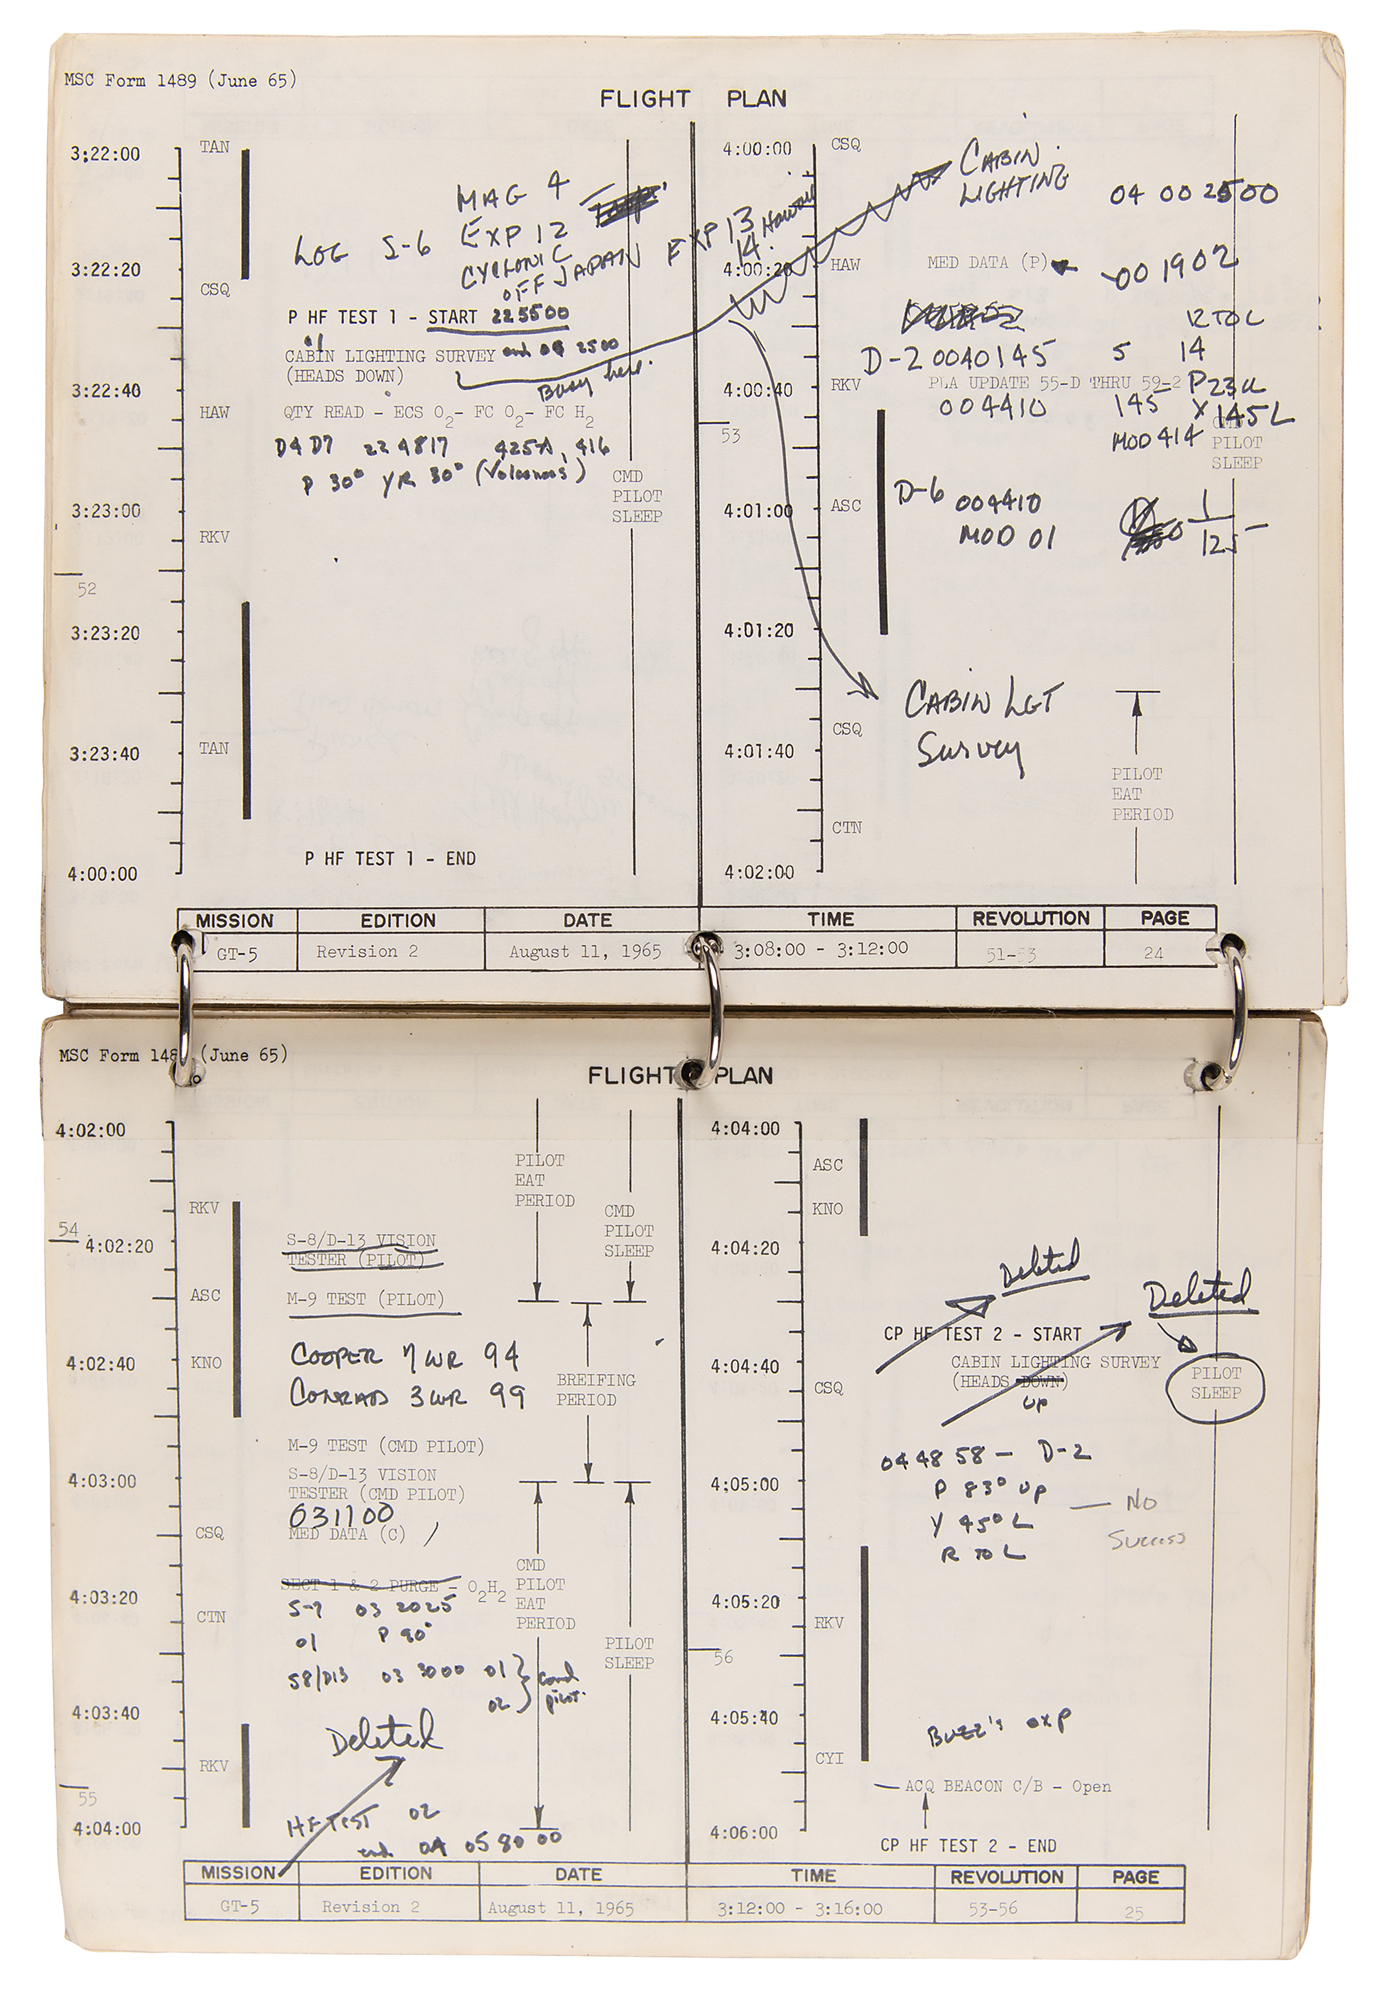 MSC Form 1489 (June 65)
FLIGHT PLAN
3:22:00
TAN
MAG 4
LOG S-6 EXP 12
CYCLONIC
OFF JAPAN EXP 13 Hawaii
14
3:22:20
CSQ
P HF TEST 1 - START 225500
CABIN LIGHTING SURVEY end 04 2500
(HEADS DOWN)
Busy here.
3:22:40
HAW
QTY READ - ECS O2- FC O2- FC H2
D4 D7 224817 425A, 416
P 30° YR 30° (Volcanoes)
CMD
PILOT
SLEEP
3:23:00
RKV
52
3:23:20
3:23:40
TAN
P HF TEST 1 - END
4:00:00
4:00:00
CSQ
CABIN
LIGHTING
04 00 2500
4:00:20
HAW
MED DATA (P)
001902
12 TO L
D-2 0040145 5 14
4:00:40
RKV
PLA UPDATE 55-D THRU 59-2 P23u
004410 145 X 145L
MOD 414
CMD
PILOT
SLEEP
53
4:01:00
ASC
D-6 004410
MOD 01
1
125
4:01:20
CABIN LGT
Survey
CSQ
4:01:40
PILOT
EAT
PERIOD
CTN
4:02:00
MISSION EDITION DATE TIME REVOLUTION PAGE
GT-5 Revision 2 August 11, 1965 3:08:00 - 3:12:00 51-53 24
MSC Form 148 (June 65)
FLIGHT PLAN
4:02:00
PILOT
EAT
PERIOD
RKV
CMD
PILOT
SLEEP
54
4:02:20
S-8/D-13 VISION
TESTER (PILOT)
ASC
M-9 TEST (PILOT)
4:02:40
KNO
COOPER 7 WR 94
CONRAD 3 WR 99
BREIFING
PERIOD
M-9 TEST (CMD PILOT)
4:03:00
S-8/D-13 VISION
TESTER (CMD PILOT)
031100
CSQ
MED DATA (C)
CMD
PILOT
EAT
PERIOD
4:03:20
SECT 1 & 2 PURGE - O2H2
S-7 03 2025
CTN
01 P 90°
PILOT
SLEEP
S8/D13 03 3000 01
02
Comd
pilot.
4:03:40
Deleted
RKV
55
HF TEST 02
end 04 05 80 00
4:04:00
4:04:00
ASC
KNO
4:04:20
Deleted
Deleted
CP HF TEST 2 - START
4:04:40
CABIN LIGHTING SURVEY
(HEADS DOWN)
UP
CSQ
PILOT
SLEEP
044858 - D-2
4:05:00
P 83° UP
Y 45° L
R 70 L
— No
Success
4:05:20
RKV
56
4:05:40
Buzz's exp
CYI
ACQ BEACON C/B - Open
4:06:00
CP HF TEST 2 - END
MISSION EDITION DATE TIME REVOLUTION PAGE
GT-5 Revision 2 August 11, 1965 3:12:00 - 3:16:00 53-56 25